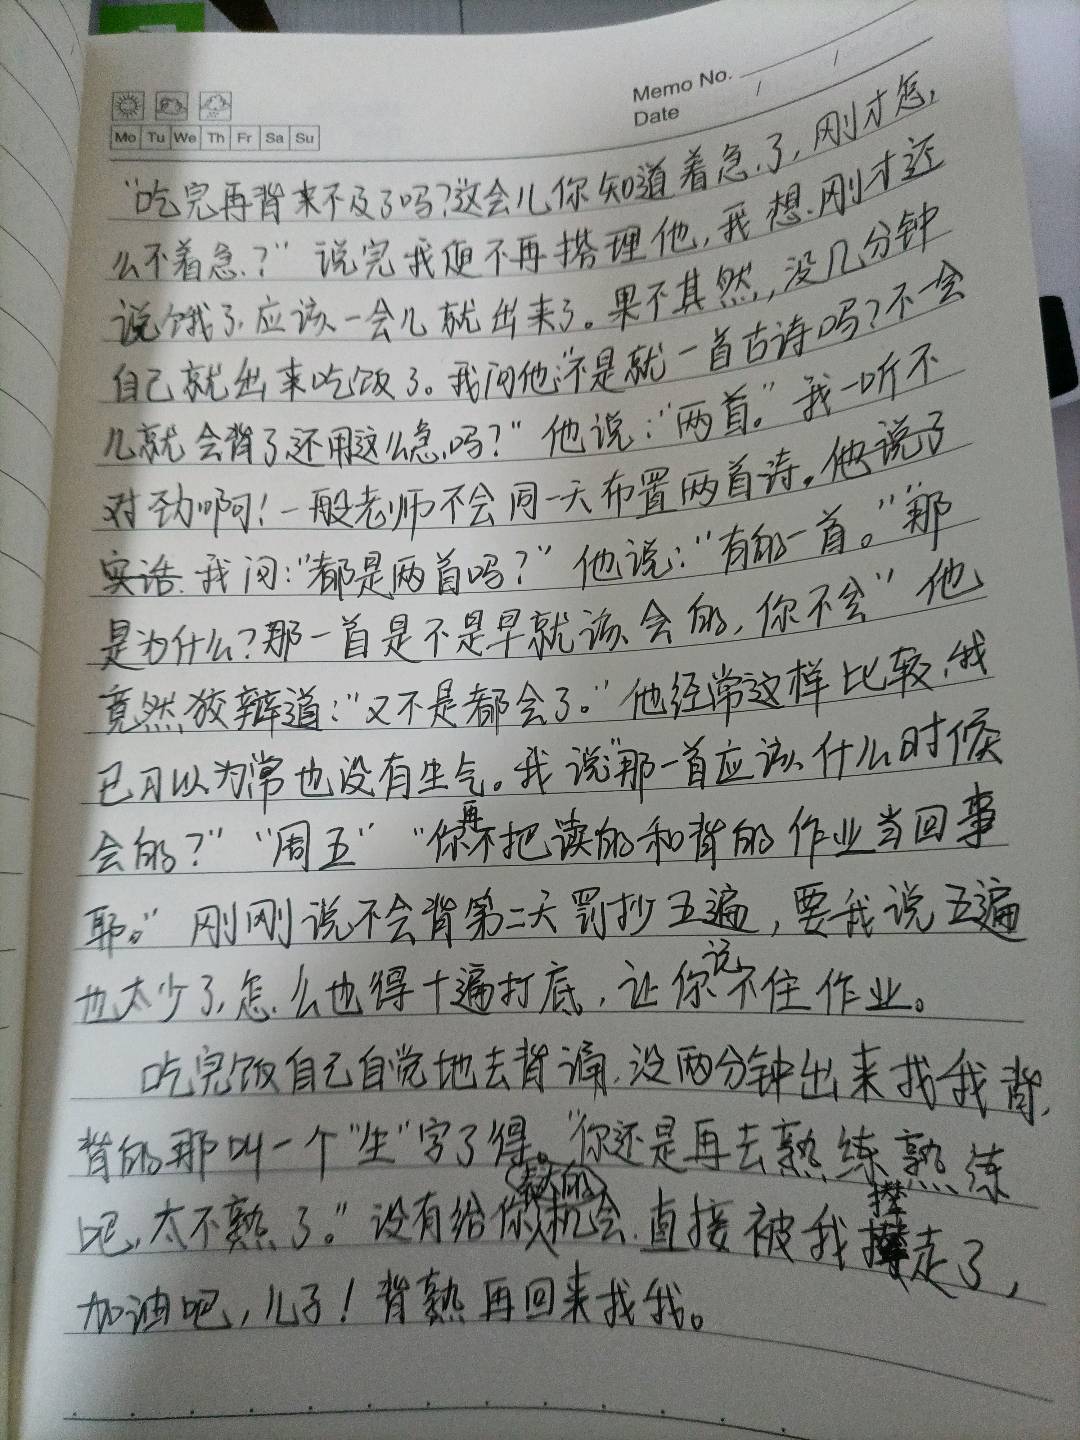 Memo No.
Date / /
Mo Tu We Th Fr Sa Su
"吃完再背来不及了吗?这会儿你知道着急了,刚才怎
么不着急?"说完我便不再搭理他,我想刚才还
说饿了,应该一会儿就出来了。果不其然,没几分钟
自己就出来吃饭了。我问他"不是就一首古诗吗?不一会
儿就会背了还用这么急吗?"他说:"两首。"我一听不
对劲啊!一般老师不会同一天布置两首诗。他说了
实话.我问:"都是两首吗?"他说:"有的一首。""那
是为什么?那一首是不是早就该会的,你不会"他
竟然狡辩道:"又不是都会了。"他经常这样比较,我
已习以为常也没有生气。我说"那一首应该什么时候
会的?""周五""你再不把读的和背的作业当回事
耶。"刚刚说不会背第二天罚抄五遍,要我说五遍
也太少了,怎么也得十遍打底,让你记不住作业。
吃完饭自己自觉地去背诵,没两分钟出来找我背,
背的那叫一个"生"字了得。"你还是再去熟练熟练
吧,太不熟了。"没有给你机会,直接被我撵走了,
加油吧,儿子!背熟再回来找我。